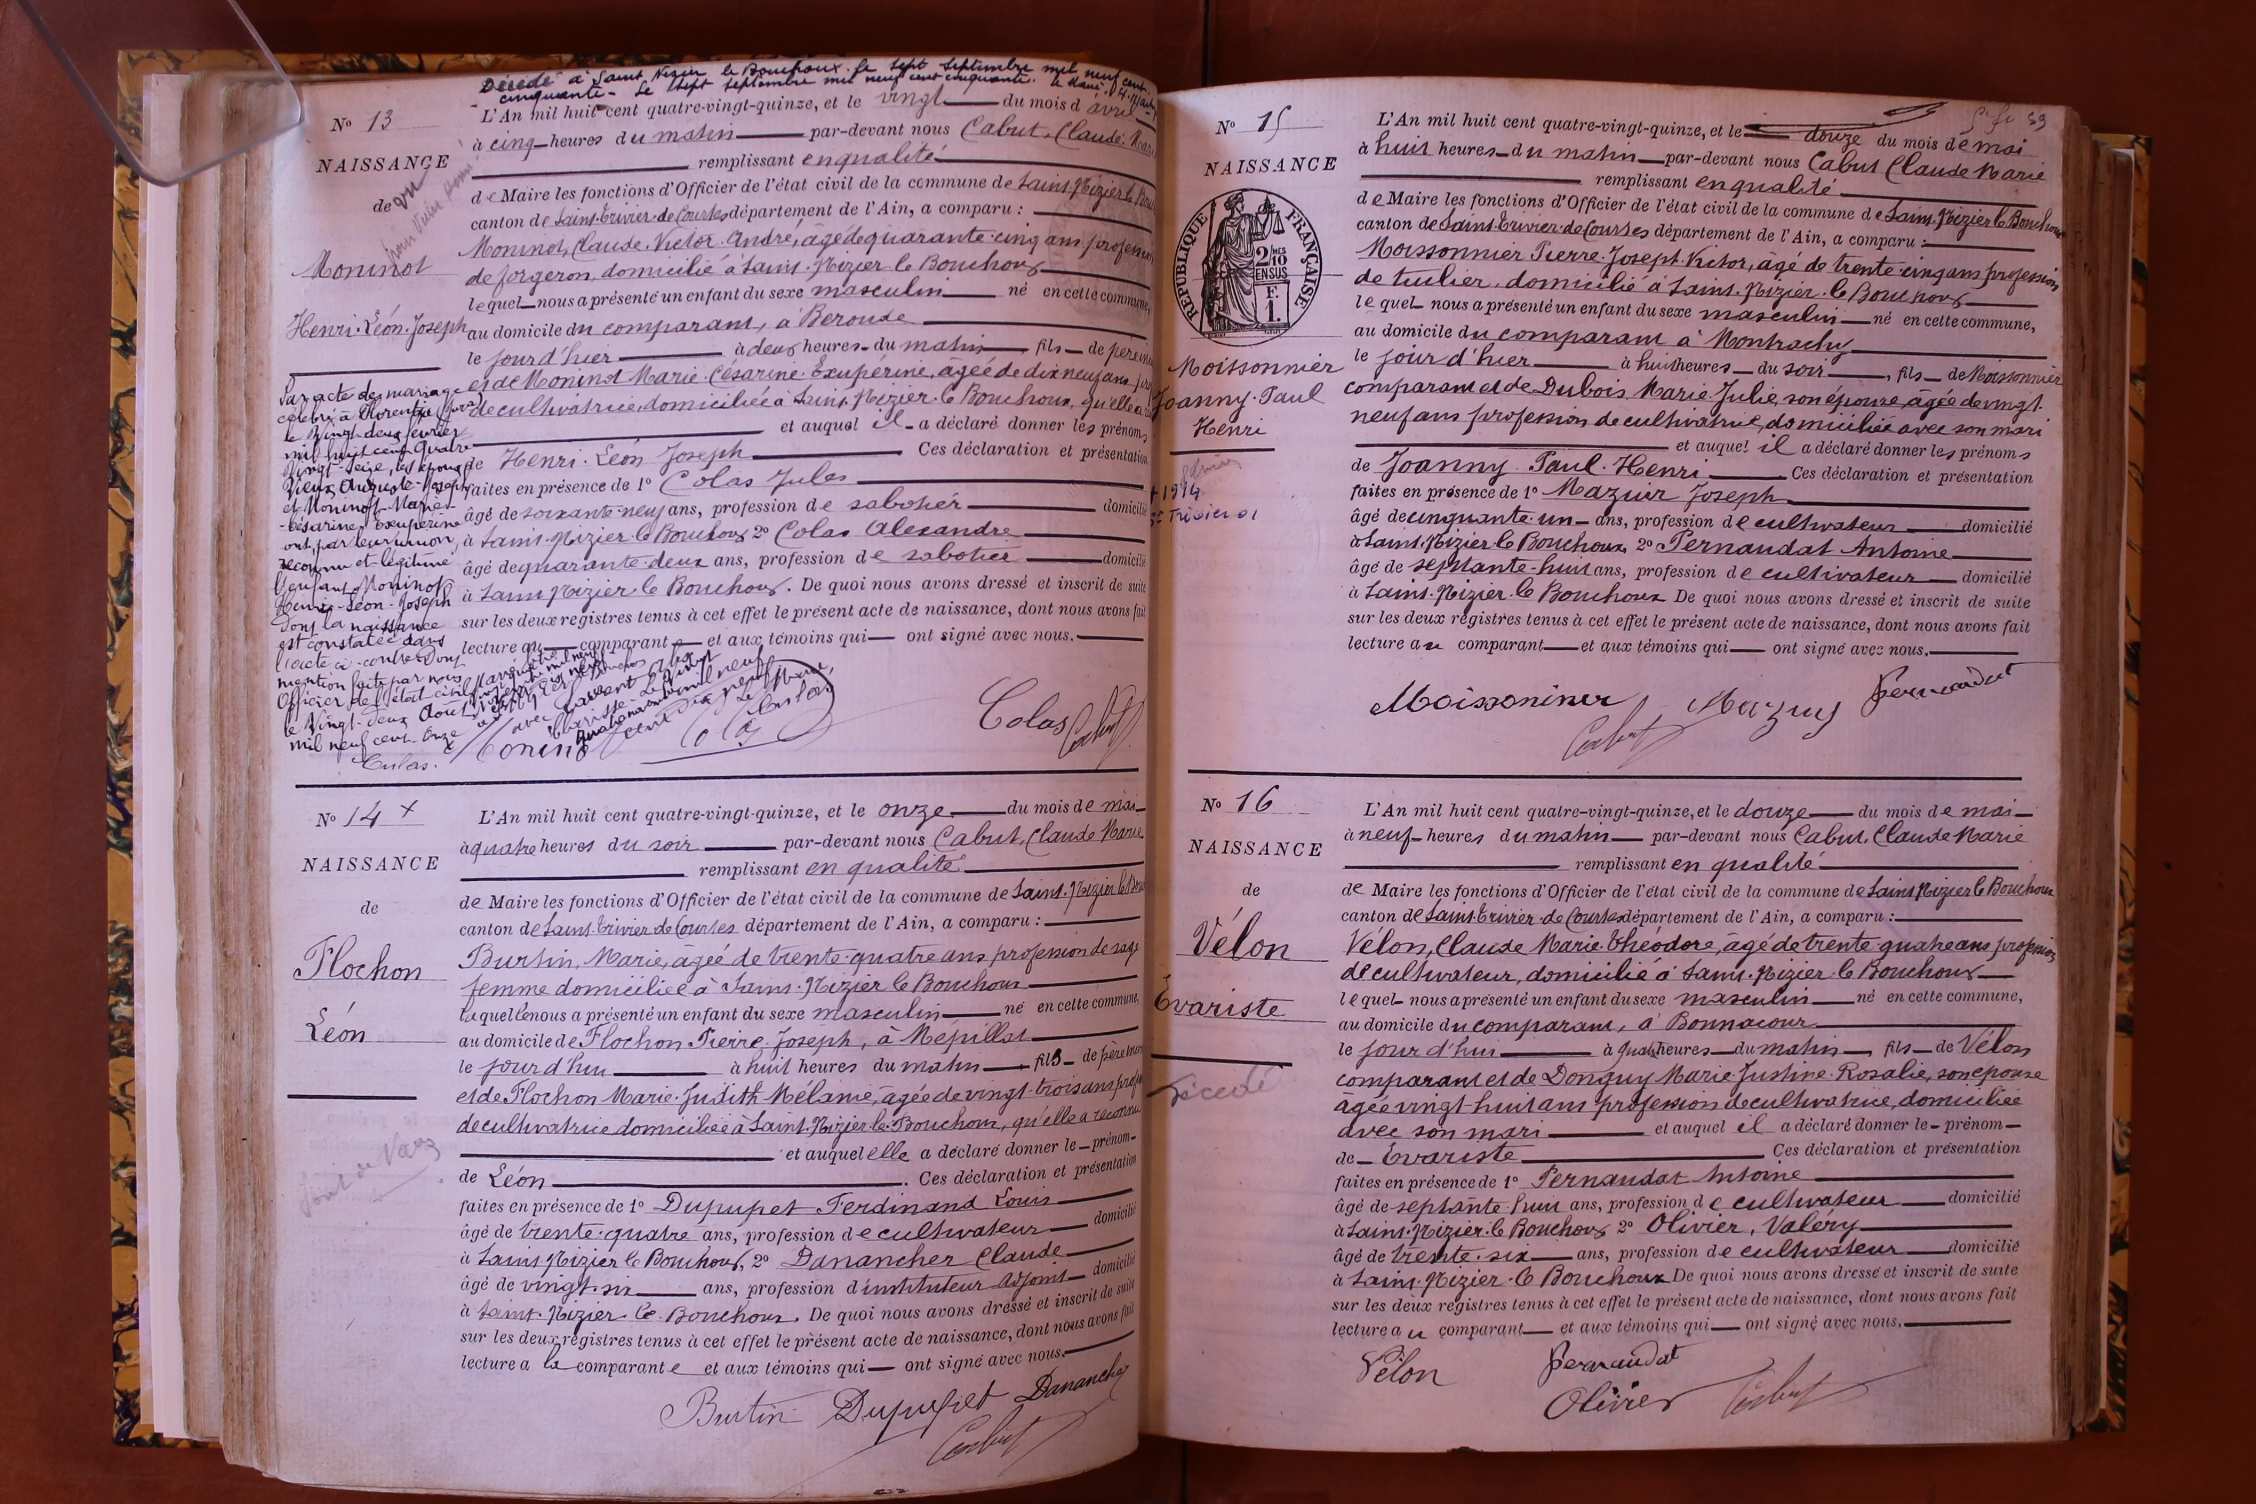 Décédé à Saint Nizier le Bouchoux le sept septembre mil neuf cent
cinquante - Le sept septembre mil neuf cent cinquante. Le Maire,
N° 13
NAISSANCE
de
vu
Moninot
Henri-Léon-Joseph
L'An mil huit cent quatre-vingt-quinze, et le vingt du mois d avril
à cinq heures du matin par-devant nous Cabut, Claude Marie
remplissant en qualité
de Maire les fonctions d'Officier de l'état civil de la commune de Saint-Nizier le Bou
canton de Saint-Trivier-de-Courtes département de l'Ain, a comparu :
Moninot, Claude Victor André, âgé de quarante-cinq ans profession
de forgeron, domicilié à Saint-Nizier le Bouchoux
lequel nous a présenté un enfant du sexe masculin né en cette commune,
au domicile du comparant, à Beroude
le jour d'hier à deux heures du matin fils de père in
et de Moninot Marie Césarine Exupérine, âgée de dix neuf ans, pro
de cultivatrice, domiciliée à Saint-Nizier-le Bouchoux, qu'elle a
et auquel il a déclaré donner les prénoms
de Henri-Léon Joseph Ces déclaration et présentation
faites en présence de 1° Colas Jules
âgé de soixante-neuf ans, profession de sabotier domicilié
à Saint-Nizier-le Bouchoux 2° Colas Alexandre
âgé de quarante-deux ans, profession de sabotier domicilié
à Saint-Nizier-le Bouchoux. De quoi nous avons dressé et inscrit de suite
sur les deux registres tenus à cet effet le présent acte de naissance, dont nous avons fait
lecture au comparant et aux témoins qui ont signé avec nous.
Par acte de mariage
célébré à Florentia (Jura)
le vingt-deux février
mil huit cent quatre
vingt-seize, les époux
Vieux Auguste-Joseph
et Moninot-Marie-
-Césarine Exupérine
ont par leur union,
reconnu et légitimé
l'enfant Moninot
Henri-Léon-Joseph
dont la naissance
est constatée dans
l'acte ci-contre Dont
mention faite par nous
Officier de l'état civil
le vingt-deux Août
mil neuf cent onze
Colas.
Moninot
Colas
Colas
Cabut
N° 14 +
NAISSANCE
de
Flochon
Léon
Pont de Vaux
L'An mil huit cent quatre-vingt-quinze, et le onze du mois de mai
à quatre heures du soir par-devant nous Cabut, Claude Marie
remplissant en qualité
de Maire les fonctions d'Officier de l'état civil de la commune de Saint-Nizier le Bou
canton de Saint-Trivier-de-Courtes département de l'Ain, a comparu :
Burtin, Marie, âgée de trente-quatre ans, profession de sage
femme domiciliée à Saint-Nizier le Bouchoux
laquelle nous a présenté un enfant du sexe masculin né en cette commune,
au domicile de Flochon Pierre Joseph, à Mépillat
le jour d'hui à huit heures du matin fils de père inconnu
et de Flochon Marie-Judith Mélanie, âgée de vingt-trois ans prof
de cultivatrice domiciliée à Saint-Nizier-le-Bouchoux, qu'elle a reconnu
et auquel elle a déclaré donner le prénom
de Léon. Ces déclaration et présentation
faites en présence de 1° Dupupet Ferdinand Louis
âgé de trente-quatre ans, profession de cultivateur domicilié
à Saint-Nizier le Bouchoux, 2° Danancher Claude
âgé de vingt-six ans, profession d'instituteur adjoint domicilié
à Saint-Nizier-le-Bouchoux. De quoi nous avons dressé et inscrit de suite
sur les deux registres tenus à cet effet le présent acte de naissance, dont nous avons fait
lecture a la comparante et aux témoins qui ont signé avec nous.
Burtin Dupupet Danancher
Cabut
N° 15
NAISSANCE
RÉPUBLIQUE FRANÇAISE
2/10 EN SUS
F. 1.
Moissonnier
Joanny-Paul
Henri
+ 1974
St Trivier 01
L'An mil huit cent quatre-vingt-quinze, et le douze du mois de mai
à huit heures du matin par-devant nous Cabut Claude Marie
remplissant en qualité
de Maire les fonctions d'Officier de l'état civil de la commune de Saint-Nizier le Bouchoux
canton de Saint-Trivier-de-Courtes département de l'Ain, a comparu :
Moissonnier Pierre-Joseph-Victor, âgé de trente-cinq ans profession
de tuilier, domicilié à Saint-Nizier-le-Bouchoux
lequel nous a présenté un enfant du sexe masculin né en cette commune,
au domicile du comparant à Montrachy
le jour d'hier à huit heures du soir, fils de Moissonnier
comparant et de Dubois Marie Julie, son épouse, âgée de vingt-
neuf ans profession de cultivatrice, domiciliée avec son mari
et auquel il a déclaré donner les prénoms
de Joanny-Paul-Henri Ces déclaration et présentation
faites en présence de 1° Mazuir Joseph
âgé de cinquante-un ans, profession de cultivateur domicilié
à Saint-Nizier le Bouchoux 2° Pernaudat Antoine
âgé de septante-huit ans, profession de cultivateur domicilié
à Saint-Nizier-le Bouchoux De quoi nous avons dressé et inscrit de suite
sur les deux registres tenus à cet effet le présent acte de naissance, dont nous avons fait
lecture au comparant et aux témoins qui ont signé avec nous.
Moissonnier Mazuy Pernaudat
Cabut
N° 16
NAISSANCE
de
Vélon
Evariste
Décédé
L'An mil huit cent quatre-vingt-quinze, et le douze du mois de mai
à neuf heures du matin par-devant nous Cabut, Claude Marie
remplissant en qualité
de Maire les fonctions d'Officier de l'état civil de la commune de Saint-Nizier le Bouchoux
canton de Saint-Trivier-de-Courtes département de l'Ain, a comparu :
Vélon, Claude Marie-Théodore, âgé de trente-quatre ans profession
de cultivateur, domicilié à Saint-Nizier-le Bouchoux
lequel nous a présenté un enfant du sexe masculin né en cette commune,
au domicile du comparant, à Bonnacour
le jour d'hui à quatre heures du matin, fils de Vélon
comparant et de Donguy Marie-Justine-Rosalie, son épouse
âgée vingt-huit ans profession de cultivatrice, domiciliée
avec son mari et auquel il a déclaré donner le prénom
de Evariste Ces déclaration et présentation
faites en présence de 1° Pernaudat Antoine
âgé de septante-huit ans, profession de cultivateur domicilié
à Saint-Nizier-le Bouchoux 2° Olivier, Valéry
âgé de trente-six ans, profession de cultivateur domicilié
à Saint-Nizier-le Bouchoux De quoi nous avons dressé et inscrit de suite
sur les deux registres tenus à cet effet le présent acte de naissance, dont nous avons fait
lecture au comparant et aux témoins qui ont signé avec nous.
Vélon Pernaudat
Olivier Cabut